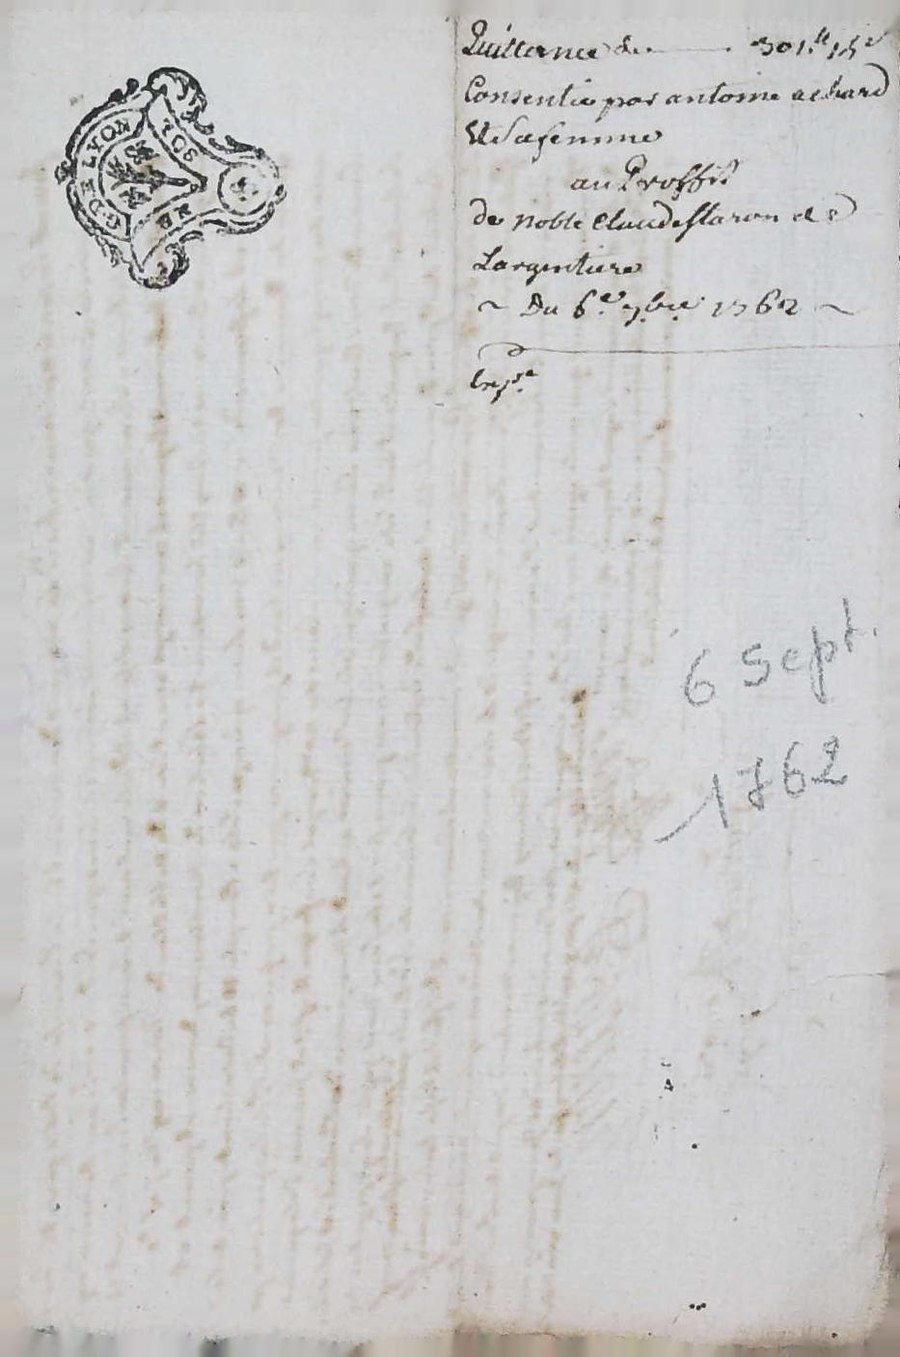 G. DE LYON
SOL
UN
Quittance de 301.tt 15s
Consentie par antoine achard
Et Sa femme
au Proffit
de noble Claude flaron de
Largentiere
~ Du 6.e 7.bre 1762 ~
Exp.e
6 Sept.
1762